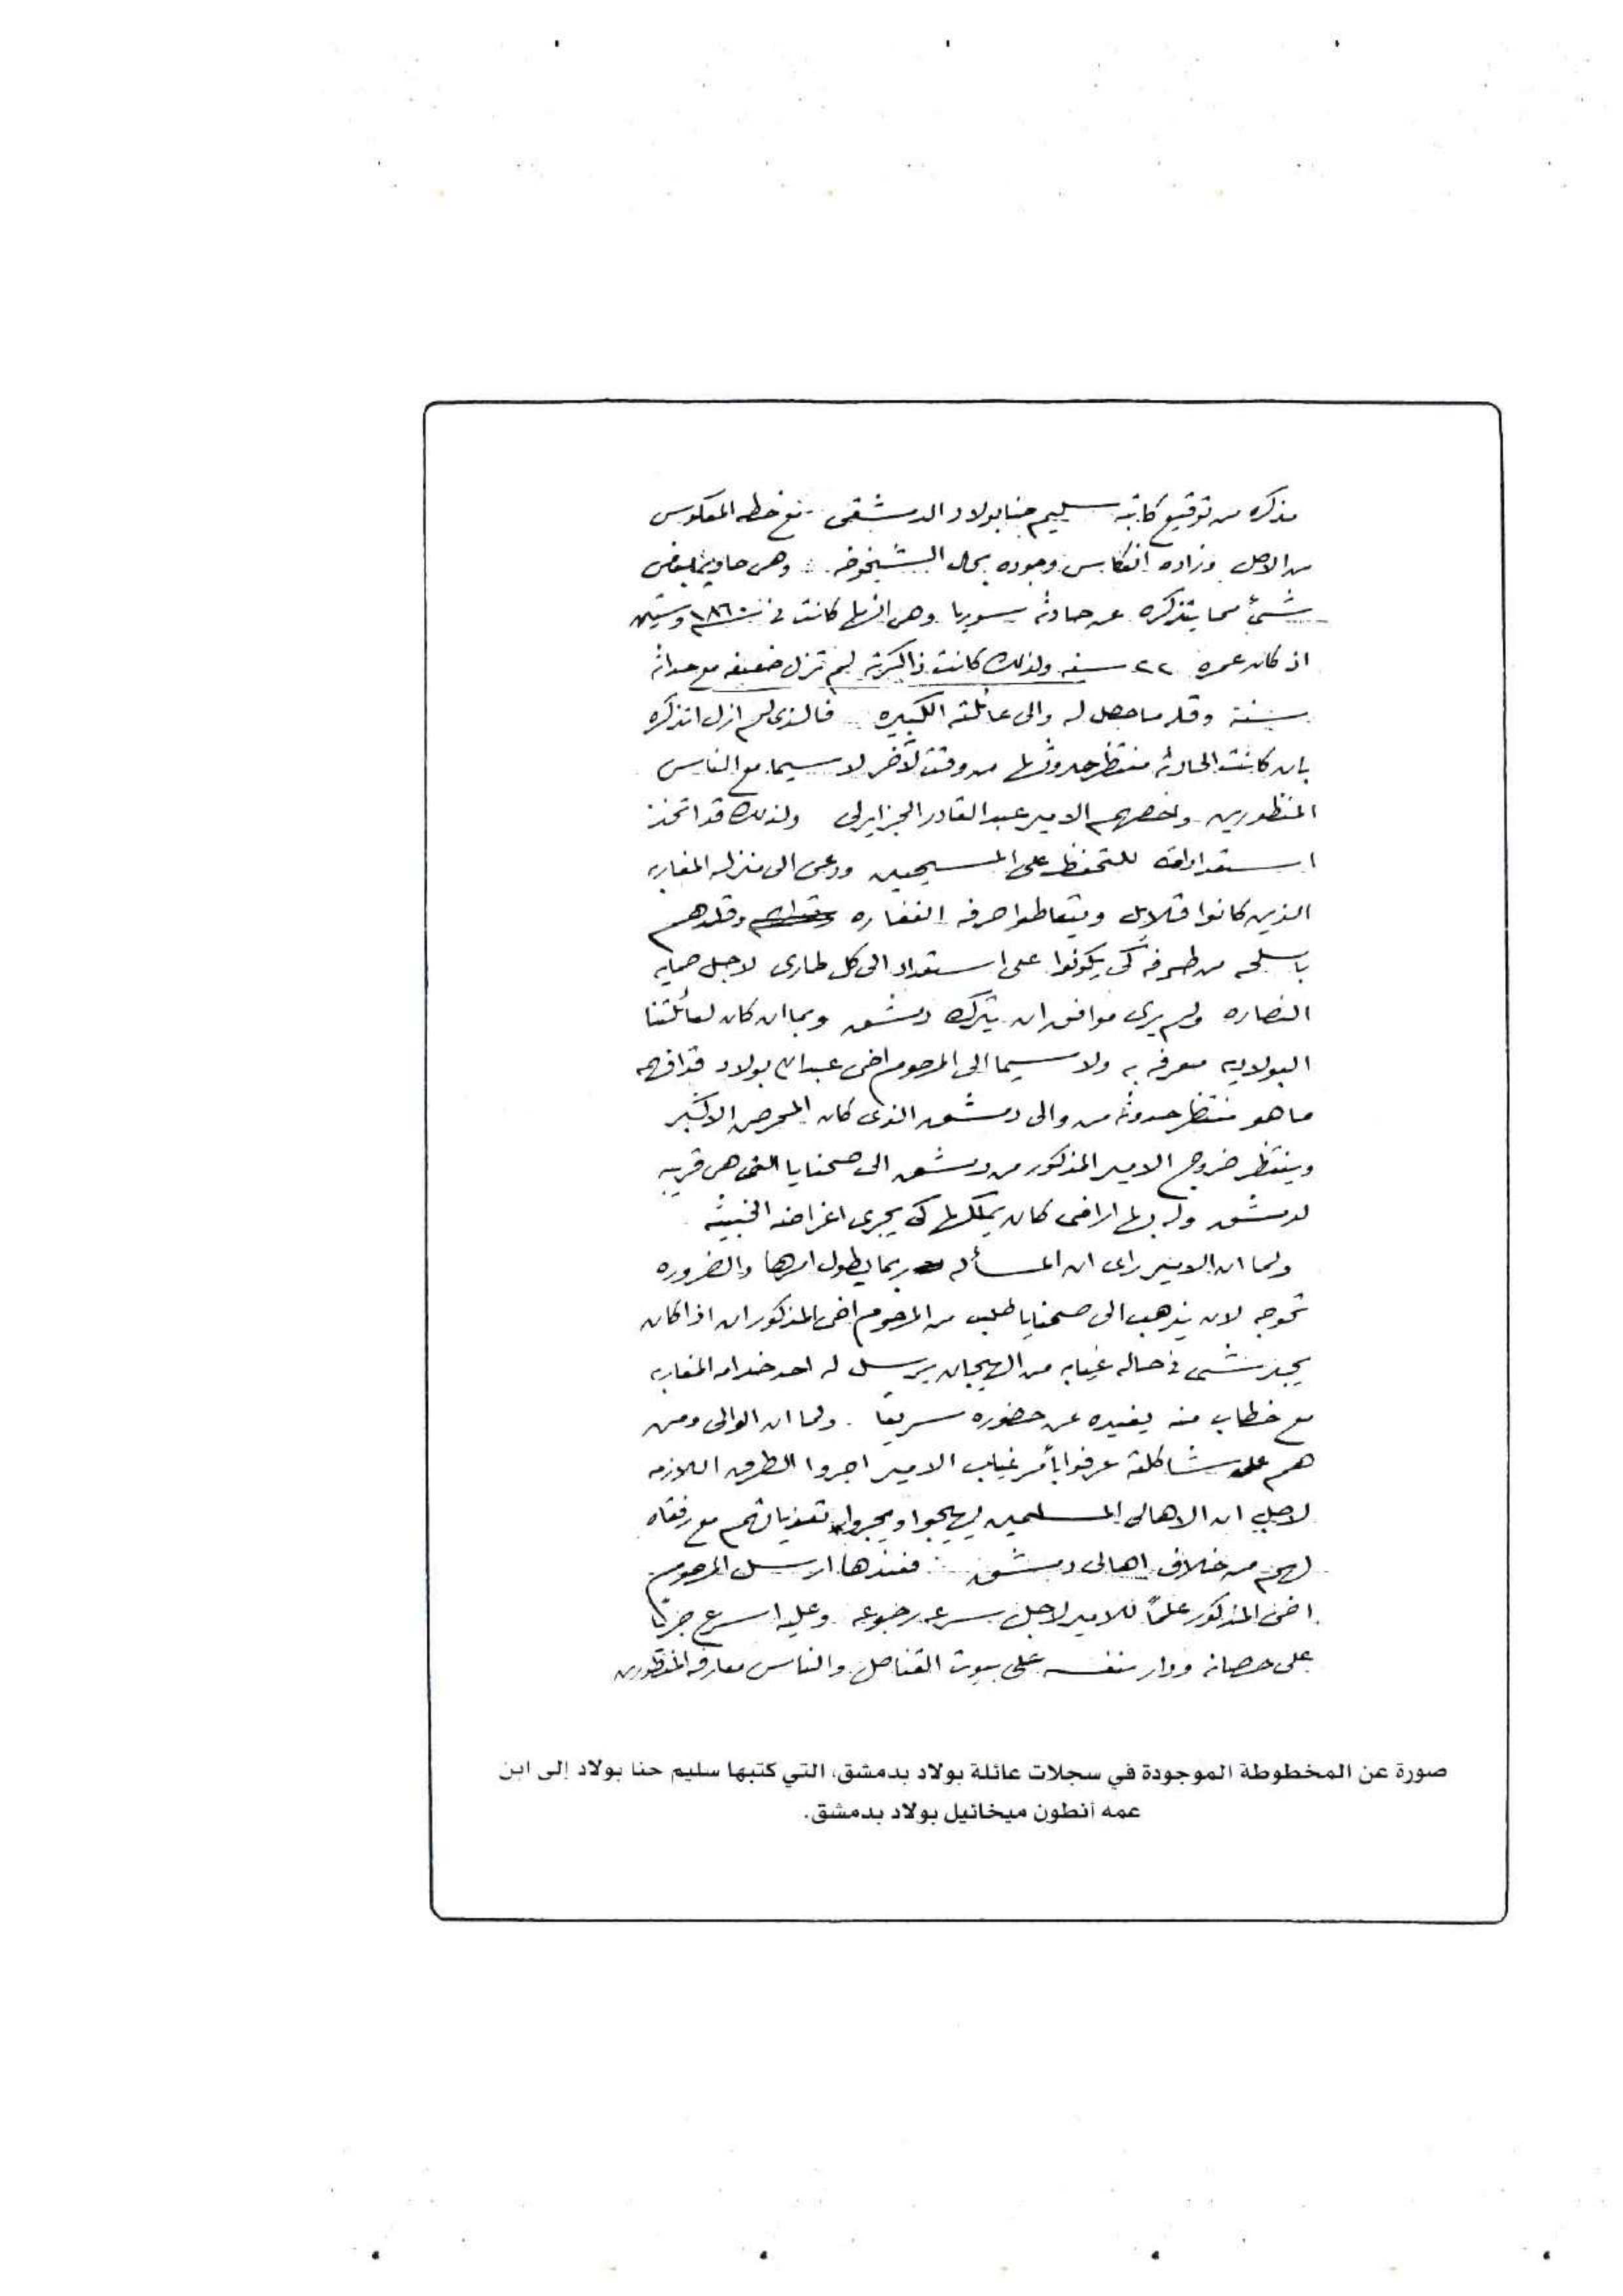 مذكره من توقيع كاتبه سليم حنا بولاد الدمشقى - مع خطه المعكوس
من الاصل وزاده انعكاس وجوده بحال الشيخوخه .. وهى حاويه لبعض
شىء مما يتذكره عن حادثه سوريا وهى انها كانت فى سنة ١٨٦٠ وستين
اذ كان عمره ٢٢ سنه ولذلك كانت ذاكرته لم تزل ضعيفه مع حداثه
سنه وقد ما حصل له والى عائلته الكبيره .. فالذى لم ازل اتذكره
بان كانت الحادثه منتظر حدوثها من وقت لآخر لا سيما مع الناس
المنظورين واخصهم الامير عبد القادر الجزايرلى ولذلك قد اتخذ
استعداداته للتحفظ على المسيحيين ودعى الى منزله المغاربه
الذين كانوا قلايل ويتعاطوا حرفه الغفاره وقلدهم
باسلحه من طرفه كى يكونوا على استعداد الى كل طارى لاجل حمايه
النصاره ولم يرى موافق ان يترك دمشق وبما ان كان لعائلتنا
البولاديه معرفه به ولا سيما الى المرحوم اخى عبدالله بولاد قد افهمه
ما هو منتظر حدوثه من والى دمشق الذى كان المحرض الاكبر
وينتظر خروج الامير المذكور من دمشق الى صحنايا التى هى قريبه
لدمشق وله بها اراضى كان يملكها كى يجرى اغراضه الخبيثه
ولما ان الامير راى ان المسأله ربما يطول امرها والضروره
تحوجه لان يذهب الى صحنايا طلب من المرحوم اخى المذكور ان اذا كان
يجد شى فى حاله غيابه من الهيجان يرسل له احد خدامه المغاربه
مع خطاب منه يفيده عن حضوره سريعًا . ولما ان الوالى ومن
هم على شاكلته عرفوا بأمر غياب الامير اجروا الطرق اللازمه
لاجل ان الاهالى المسلمين ليهيجوا ويجروا تعذياتهم مع رفقاه
لهم من خلاف اهالى دمشق .. فعندها ارسل المرحوم
اخى المذكور علمًا للامير لاجل سرعه رجوعه وعليه اسرع جريًا
على حصانه ودار بنفسه على بيوت القناصل والناس معارفه المنظورين
صورة عن المخطوطة الموجودة في سجلات عائلة بولاد بدمشق، التي كتبها سليم حنا بولاد إلى ابن
عمه أنطون ميخائيل بولاد بدمشق.